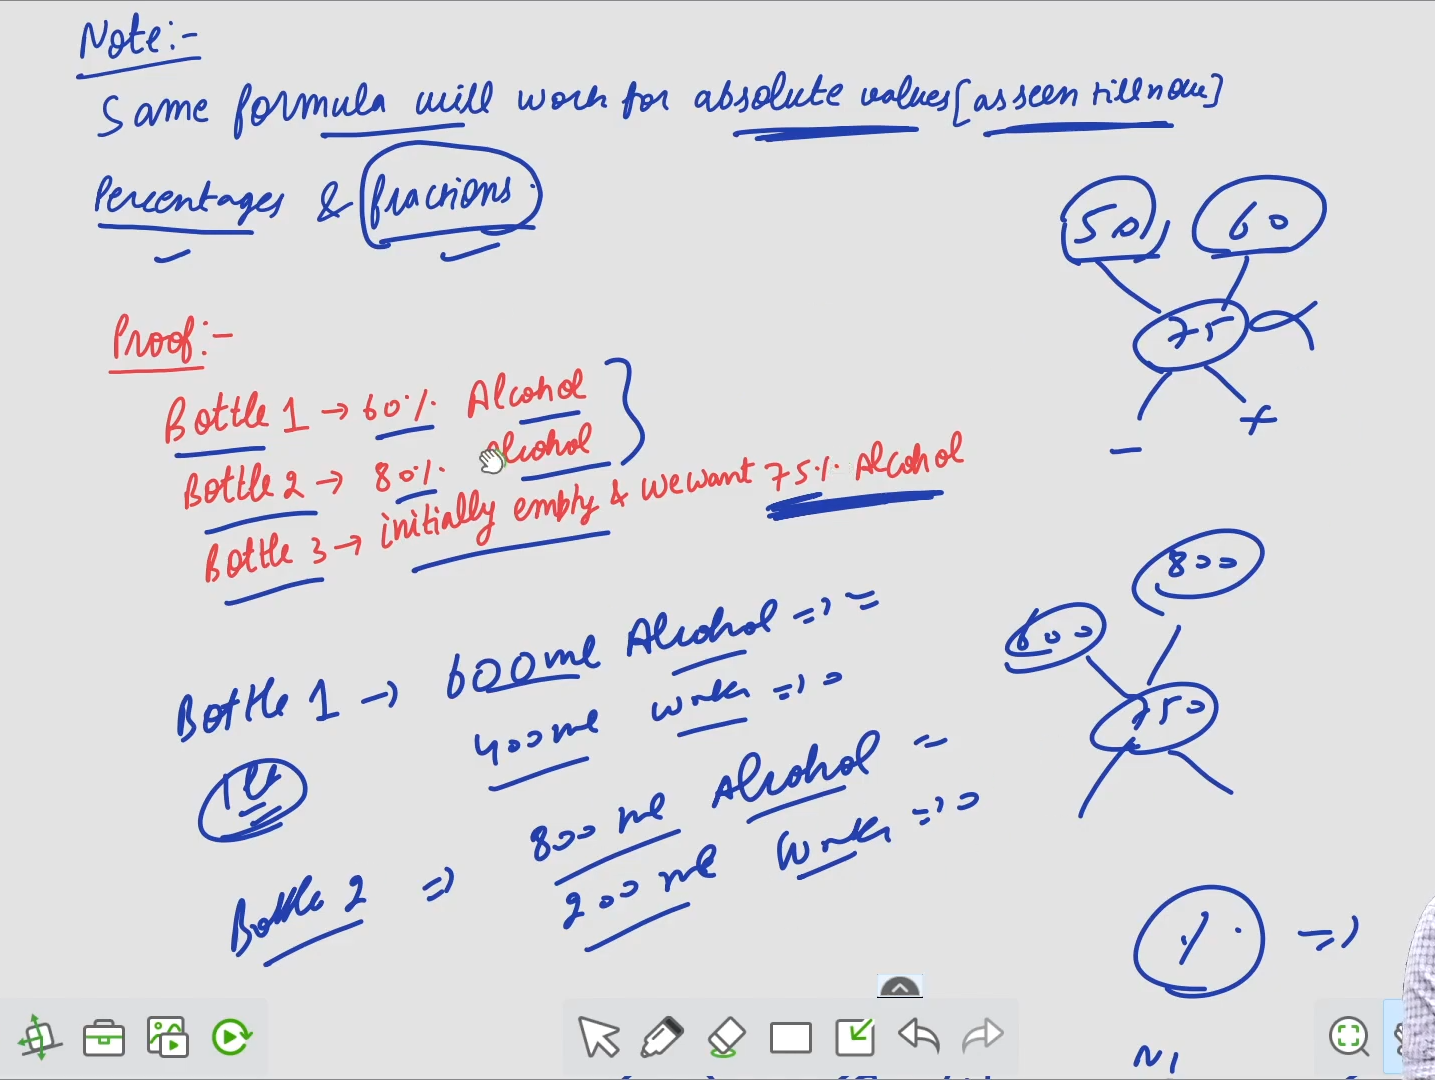 Note:-
Same formula will work for absolute values [as seen till now]
Percentages & fractions.
50 60
75
- +
Proof:-
Bottle 1 → 60% Alcohol
Bottle 2 → 80% Alcohol
Bottle 3 → initially empty & we want 75% Alcohol
800
600
750
Bottle 1 → 600ml Alcohol =>
400ml water =>
Bottle 2 => 800 ml Alcohol
200 ml water =>
% =>
N1